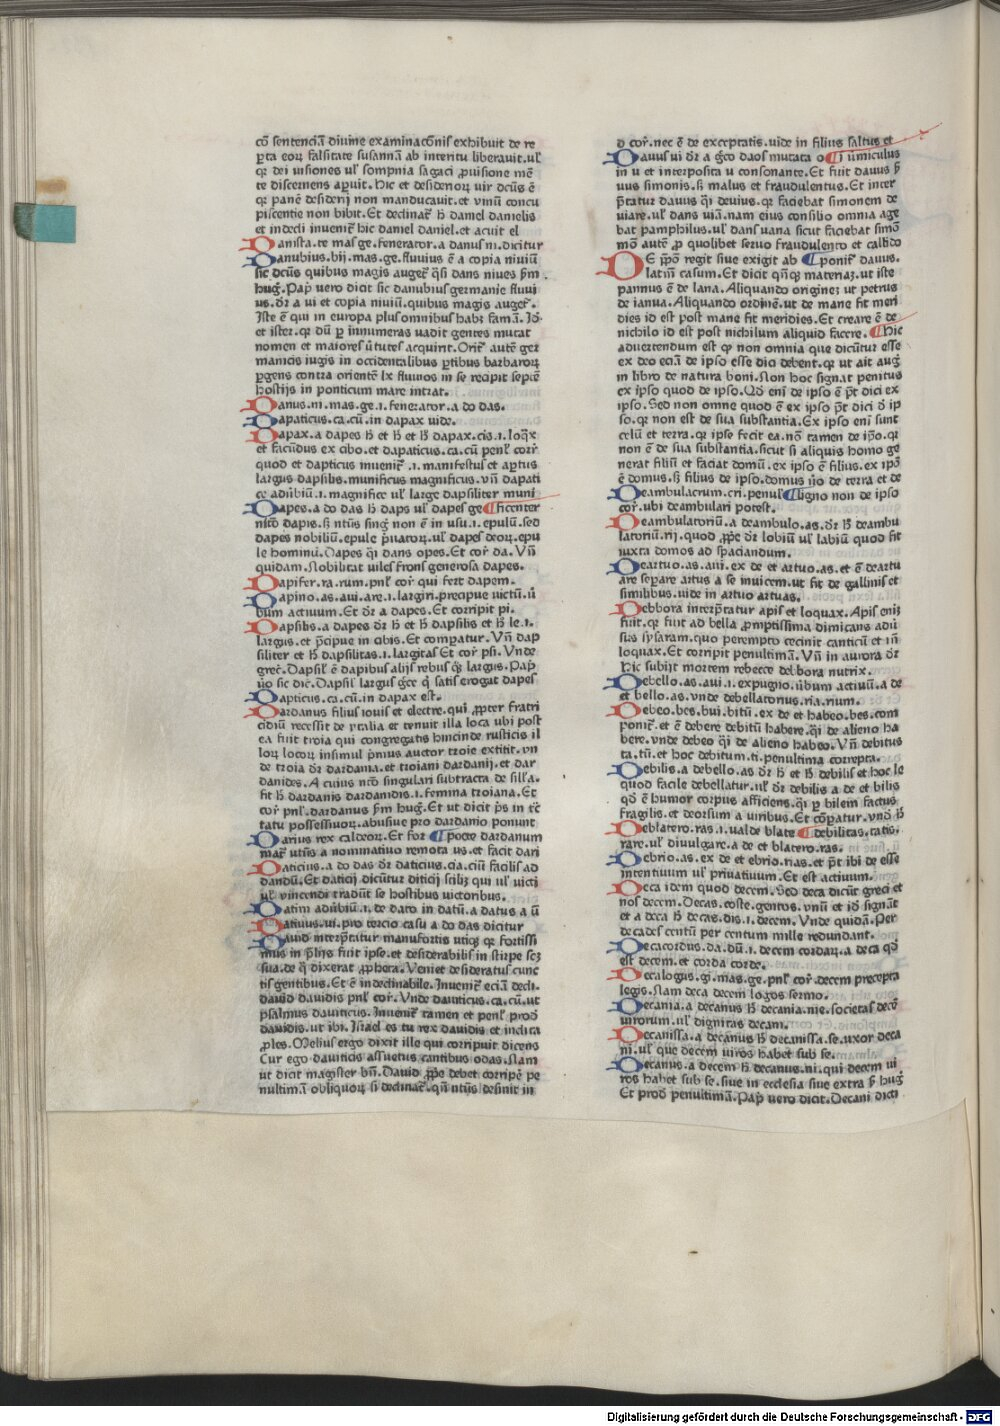 cō sentenciā diuine examinacōnis exhibuit de re
ꝑta eoꝝ falsitate susannā ab interitu liberauit. ul̓
qꝛ dei uisiones ul̓ sompnia sagaci ꝓuisione mē
te discernens aꝑuit. Hic et desidenoꝝ uir dc̄us ē
qꝛ panē desiderij non manducauit. et vinū concu
piscentie non bibit. Et declinat̄ h̄ daniel danielis
et indecli inueniť hic daniel daniel. et acuit el
Danista. te mas ge. fenerator. a danus ni. dicitur
Danubius. bij. mas. ge. fluuius ē a copia niuiū
sic dc̄us quibus magis augeť q̄si dans niues ẜm
hug̓. Pap̓ uero dicit sic danubius germanie fluui
us. dr̄ a ui et copia niuiū. quibus magis augeť.
Iste ē qui in europa plus omnibus habꝫ famā. Id
et ister. qꝛ dū ꝑ innumeras uadit gentes mutat
nomen et maiores ūtutes acquirit. Oriť autē ger
manicis iugis in occidentalibus ꝑtibus barbaroꝝ
ꝑgens contra orientē lx fluuios in se recipit septē
hostijs in ponticum mare intrat.
Danus. ni. mas. ge. i. fenerator. a do das.
Dapaticus. ca. cū. in dapax uide.
Dapax. a dapes h̄ et h̄ et h̄ dapax. cis. i. loq̄x
et facūdus ex cibo. et dapaticus. ca. cū penl̓ corr̄
quod et dapticus inueniť .i. manifestus et aꝑtus
largus dapsilis. munificus magnificus. vn̄ dapati
ce adūbiū. i. magnifice ul̓ large dapsiliter muni
Dapes. a do das h̄ daps ul̓ dapes ge ¶ ficenter
nitō dapis. ẜ ntūs sing̓ non ē in usu .i. epulū. sed
dapes nobiliū. epule p̄uatoꝝ. ul̓ dapes deoꝝ. epu
le hominū. Dapes q̄i dans opes. Et cor̄ da. Vn̄
quidam. Nobilitat uiles frons generosa dapes.
Dapifer. ra. rum. pnl̓ cor̄ qui fert dapem.
Dapino. as. aui. are .i. largiri. precipue uictū. ū
bum actiuum. Et dr̄ a dapes. Et corripit pi.
Dapsilis. a dapes dr̄ h̄ et h̄ dapsilis et h̄ le .i.
largus. et p̄cipue in cibis. Et compatur. Vn̄ dap
siliter et h̄ dapsilitas .i. largitas Et cor̄ psi. Vnde
grec̄. Dapsil̓ ē dapibus alijs rebus q̄ꝫ largus. Pap̓
ūo sic dic̄. Dapsil̓ largus gͬce q̄ satis erogat dapes
Dapticus. ca. cū. in dapax est.
Dardanus filius iouis et electre. qui ꝓpter fratri
cidiū recessit de ytalia et tenuit illa loca ubi post
ea fuit troia qui congregatis hincinde rusticis il
loꝝ locoꝝ insimul p̄mus auctor troie extitit. vn
de troia dr̄ dardania. et troiani dardanij. et dar
danides. A cuius ntō singulari subtracta de silla.
fit h̄ dardanis dardanidis .i. femina troiana. Et
cor̄ pnl̓. dardanus ẜm hug̓. Et ut dicit p̄s in tc̄
tatu possessiuoꝝ. abusiue pro dardanio ponunt
Darius rex caldeoꝝ. Et for ¶ poete dardanum
mat̄ utūs a nominatiuo remota us. et facit dari
Daticius. a do das dr̄ daticius. cia. ciū facilis ad
dandū. Et daticij dicūtur diticij scilꝫ qui ul̓ uicti
ul̓ vincendi tradūt se hostibus victoribus.
Datim adūbiū .i. de dato in datū. a datus a ū
Datiuus. ui. pro tercio casu a do das dicitur
Dauid interp̄tatur manufortis utiqꝫ qꝛ fortissi
mus in p̄lijs fuit ipse. et desiderabilis in stirpe scꝫ
sua. de q̄ dixerat ꝓpheta. Veniet desideratus cunc
tis gentibus. Et ē indeclinabile. Inueniť eciā decli.
dauid dauidis pnl̓ cor̄. Vnde dauiticus. ca. cū. ut
psalmus dauiticus. Inueniť tamen et penl̓ prod̓
dauidis. ut ibi. Israel es tu rex dauidis et inclita
ꝓles. Melius ergo dixit ille qui corripuit dicens
Cur ego dauiticis assuetus cantibus odas. Nam
ut dicit magister bn̄. Dauid ꝓpe debet corripē pe
nultimā obliquoꝝ si declinať. qn̄ ntūs desinit in
d cor̄. nec ē de exceptatis. uide in filius saltus et
Dauus ui dr̄ a gͬco daos mutata o ¶ i ūmiculus
in u et interposita u consonante. Et fuit dauus ẜ
uus simonis. ẜ malus et fraudulentus. Et inter
p̄tatur dauus q̄i deuius. qꝛ faciebat simonem de
uiare. ul̓ dans uiā. nam eius consilio omnia age
bat pamphilus. ul̓ dans uana sicut faciebat simō
mō autē ꝓ quolibet seruo fraudulento et callido
DE ꝓpō regit siue exigit ab ¶ poniť dauus.
latiū casum. Et dicit qn̄qꝫ materiaꝫ. ut iste
pannus ē de lana. Aliquando origineꝫ ut petrus
de ianua. Aliquando ordinē. ut de mane fit meri
dies id est post mane fit meridies. Et creare ē de
nichilo id est post nichilum aliquid facere. ¶ Hic
aduertendum est qꝫ non omnia que dicūtur esse
ex deo eciā de ipso esse dici debent. qꝛ ut ait aug̓
in libro de natura boni. Non hoc signat penitus
ex ipso quod de ipso. Qd̓ eni̅ de ipso ē p̄t dici ex
ipso. Sed non omne quod ē ex ipso p̄t dici d̓ ip
so. qꝛ non est de sua substantia. Ex ipso eni̅ sunt
celū et terra. qꝛ ipse fecit ea. nō tamen de ip̄o. qꝛ
non ē de sua substantia. sicut si aliquis homo ge
nerat filiū et faciat domū. ex ipso ē filius. ex ip̄o
ē domus. ẜ filius de ipso. domus ūo de terra et de
Deambulacrum. cri. penul̓ ¶ ligno non de ipso
cor̄. ubi deambulari potest.
Deambulatoriū. a deambulo. as. dr̄ h̄ deambu
latoriū. rij. quod ꝓpe dr̄ lobiū ul̓ labiū quod fit
iuxta domos ad spaciandum.
Deartuo. as. aui. ex de et artuo. as. et ē deartu
are seꝑare artus a se inuicem. ut fit de gallinis et
similibus. uide in artuo artuas.
Debbora interp̄tatur apis et loquax. Apis eniꝫ
fuit. qꝛ fuit ad bella ꝓmptissima dimicans adū
sus sysaram. quo perempto cecinit canticū et iū
loquax. Et corripit penultimā. Vn̄ in aurora dr̄
Hic subijt mortem rebecce debbora nutrix.
Debello. as. aui. i. expugno. ūbum actiuū. a de
et bello. as. vnde debellatorius. ria. rium.
Debeo. bes. bui. bitū. ex de et habeo. bes. com
poniť. et ē debere debitū habere. q̄i de alieno ha
bere. vnde debeo q̄i de alieno habeo. Vn̄ debitus
ta. tū. et hoc debitum. ti. penultima correpta.
Debilis. a debello. as dr̄ h̄ et h̄ debilis et hoc le
quod facile debellatur. ul̓ dr̄ debilis a de et bilis
qd̓ ē humor corpus afficiens. q̄i ꝑ bilem factus
fragilis. et deorsum a viribus. Et cōꝑatur. vnd̓ h̄
Deblatero. ras .i. ualde blate ¶ debilitas. tatis.
rare. ul̓ diuulgare. a de et blatero. ras.
Debrio. as. ex de et ebrio. rias. et p̄t ibi de esse
intentiuum ul̓ priuatiuum. Et est actiuum.
Deca idem quod decem. Sed deca dicūt greci et
nos decem. Decas. coste. gentos. vnū et id̓ signāt
et a deca h̄ decas. dis .i. decem. Vnde quidā. Per
decades centū per centum mille redundant.
Decacordus. da. dū .i. decem cordaꝝ. a deca qd̓
est decem. et corda corde.
Decalogus. gi. mas. ge. pnl̓ cor̄. decem precepta
legis. Nam deca decem logos sermo.
Decania. a decanus h̄ decania. nie. societas decē
uirorum. ul̓ dignitas decani.
Decanissa. a decanus h̄ decanissa. se. uxor deca
ni. ul̓ que decem uiros habet sub se.
Decanus. a decem h̄ decanus. ni. qui decem ui
ros habet sub se. siue in ecclesia siue extra ẜ hug̓
Et prod̓ penultimā. Pap̓ uero dicit. Decani dicti
Digitalisierung gefördert durch die Deutsche Forschungsgemeinschaft - DFG